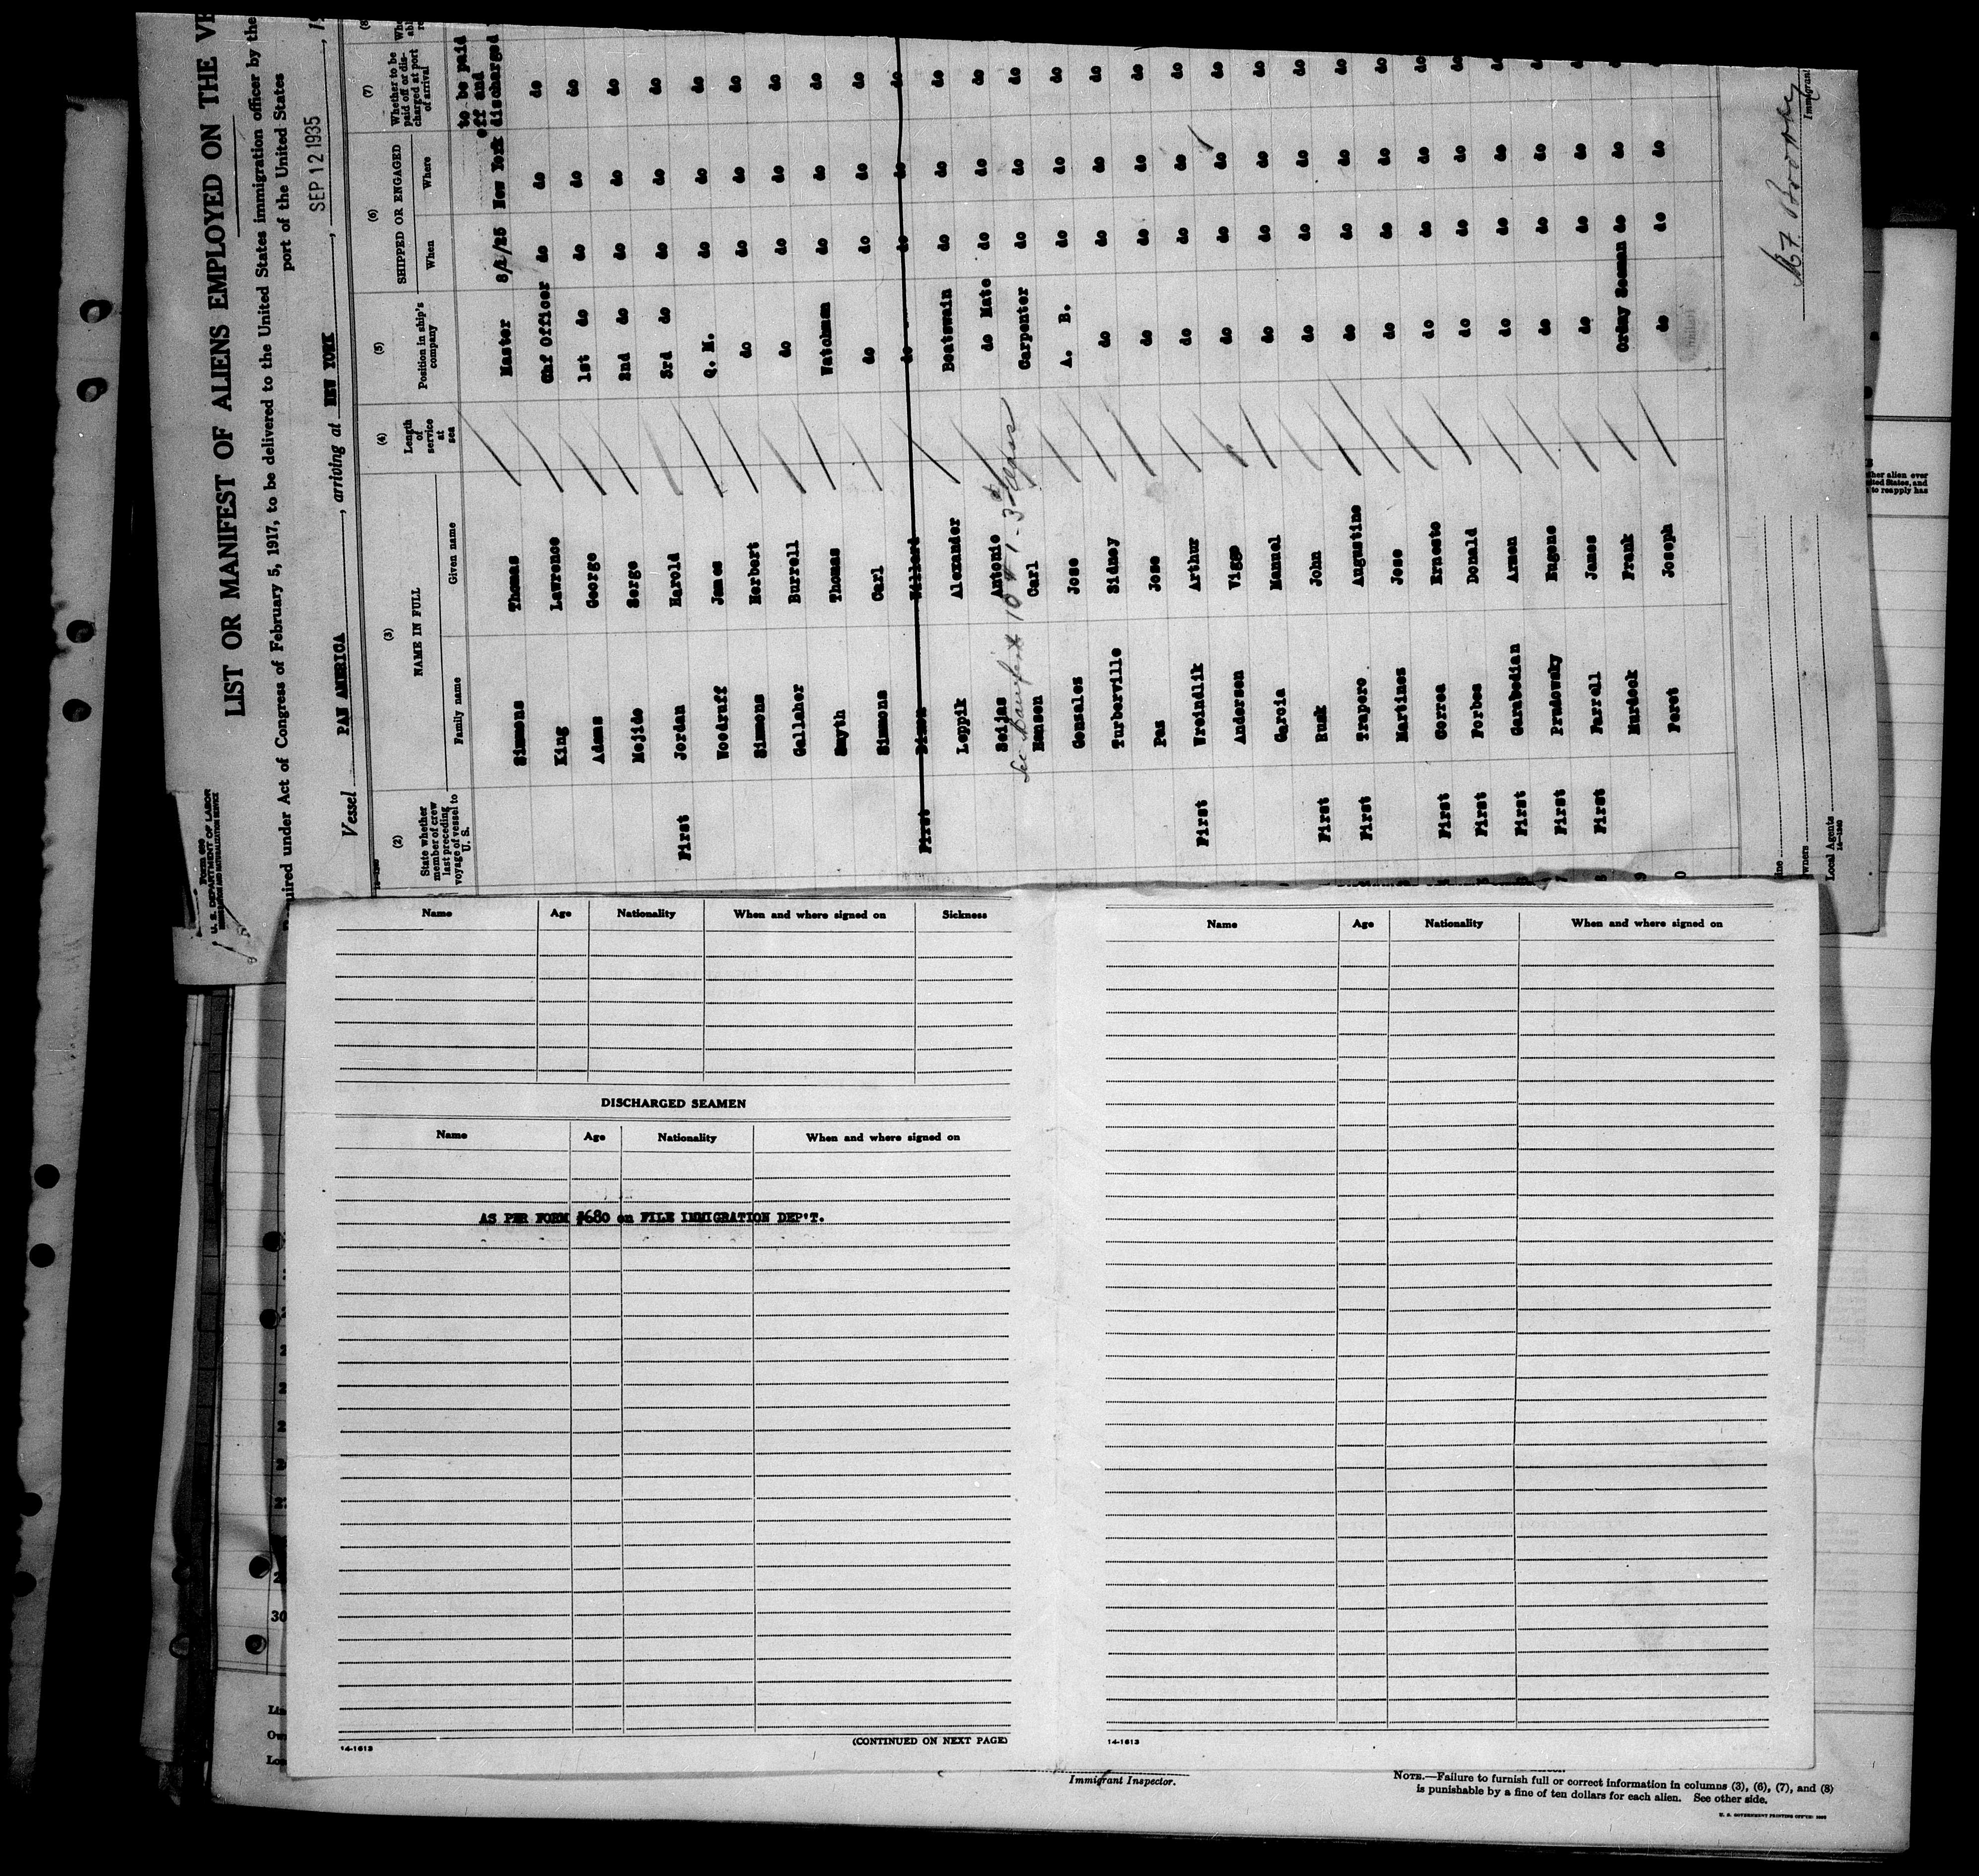 Form 680
U. S. DEPARTMENT OF LABOR
IMMIGRATION AND NATURALIZATION SERVICE
LIST OR MANIFEST OF ALIENS EMPLOYED ON THE VE
quired under Act of Congress of February 5, 1917, to be delivered to the United States immigration officer by the
port of the United States
Vessel PAN AMERICA, arriving at NEW YORK, SEP 12 1935, 19
(2) (3) (4) (5) (6) (7)
State whether member of crew last preceding voyage of vessel to U. S. NAME IN FULL Length of service at sea Position in ship's company SHIPPED OR ENGAGED Whether to be paid off or discharged at port of arrival
Family name Given name When Where
to be paid
off and
Simons Thomas Master 8/1/35 New York discharged
King Lawrence Chf Officer do do do
Adams George 1st do do do do
Mejide Serge 2nd do do do do
First Jordan Harold 3rd do do do do
Woodruff James Q. M. do do do
Simons Herbert do do do do
Gallaher Burrell do do do do
Smyth Thomas Watchman do do do
Simons Carl do do do do
First Dixon Willard do do do do
Leppik Alexander Boatswain do do do
Seijas Antonio do Mate do do do
Hansen Carl Carpenter do do do
Gonzales Jose A. B. do do do
Turberville Sidney do do do do
Paz Jose do do do do
First Wreindlik Arthur do do do do
Andersen Viggo do do do do
Garcia Manuel do do do do
First Rusk John do do do do
First Trapero Augustine do do do do
Martines Jose do do do do
First Correa Ernesto do do do do
First Forbes Donald do do do do
First Garabedian Armen do do do do
First Prudowsky Eugene do do do do
First Farrell James do do do do
Murdock Frank Ordny Seaman do do do
Peret Joseph do do do do
Local Agents
Name Age Nationality When and where signed on Sickness
DISCHARGED SEAMEN
Name Age Nationality When and where signed on
AS PER FORM #680 on FILE IMMIGRATION DEP'T.
14-1613 (CONTINUED ON NEXT PAGE)
Name Age Nationality When and where signed on
14-1613
30
Immigrant Inspector.
NOTE.—Failure to furnish full or correct information in columns (3), (6), (7), and (8)
is punishable by a fine of ten dollars for each alien. See other side.